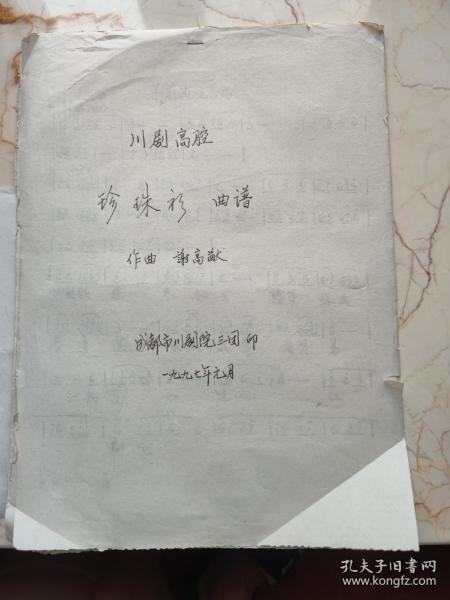 川剧高腔
珍珠衫 曲谱
作曲 谢高猷
成都市川剧院三团 印
一九九七年元月
孔夫子旧书网
www.kongfz.com